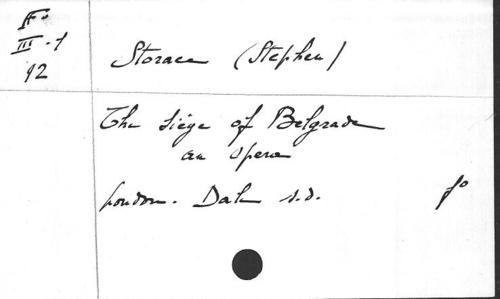 F°
III-1
12
Storace (Stephen)
The siège of Belgrade
an opera
London. Dale s.d.
f°